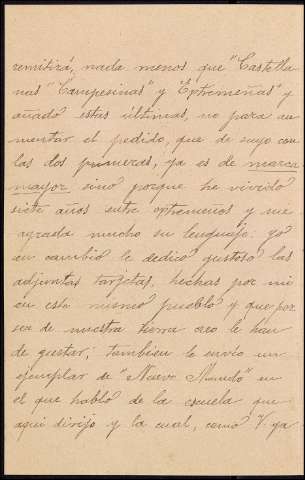 remitirá, nada menos que "Castella-
nas" "Campesinas" y "Extremeñas" y
añado estas últimas, no para au
mentar el pedido, que de suyo con
las dos primeras, ya es de marca
mayor sinó porque he vivido
siete años entre extremeños y me
agrada mucho su lenguaje; yo
en cambio le dedico gustoso las
adjuntas tarjetas, hechas por mi
en este mismo pueblo y que por
ser de nuestra tierra creo le han
de gustar; tambien le envío un
ejemplar de "Nuevo Mundo" en
el que habló de la escuela que
aqui dirijo y la cual, como V. ya